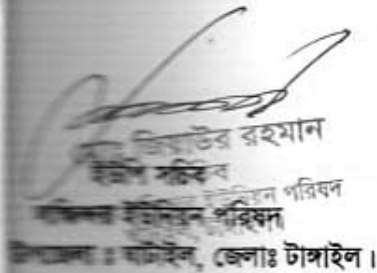 জিয়াউর রহমান
ইউপি সচিব
ইউনিয়ন পরিষদ
ইউনিয়ন পরিষদ
উপজেলা : ঘাটাইল, জেলাঃ টাঙ্গাইল।